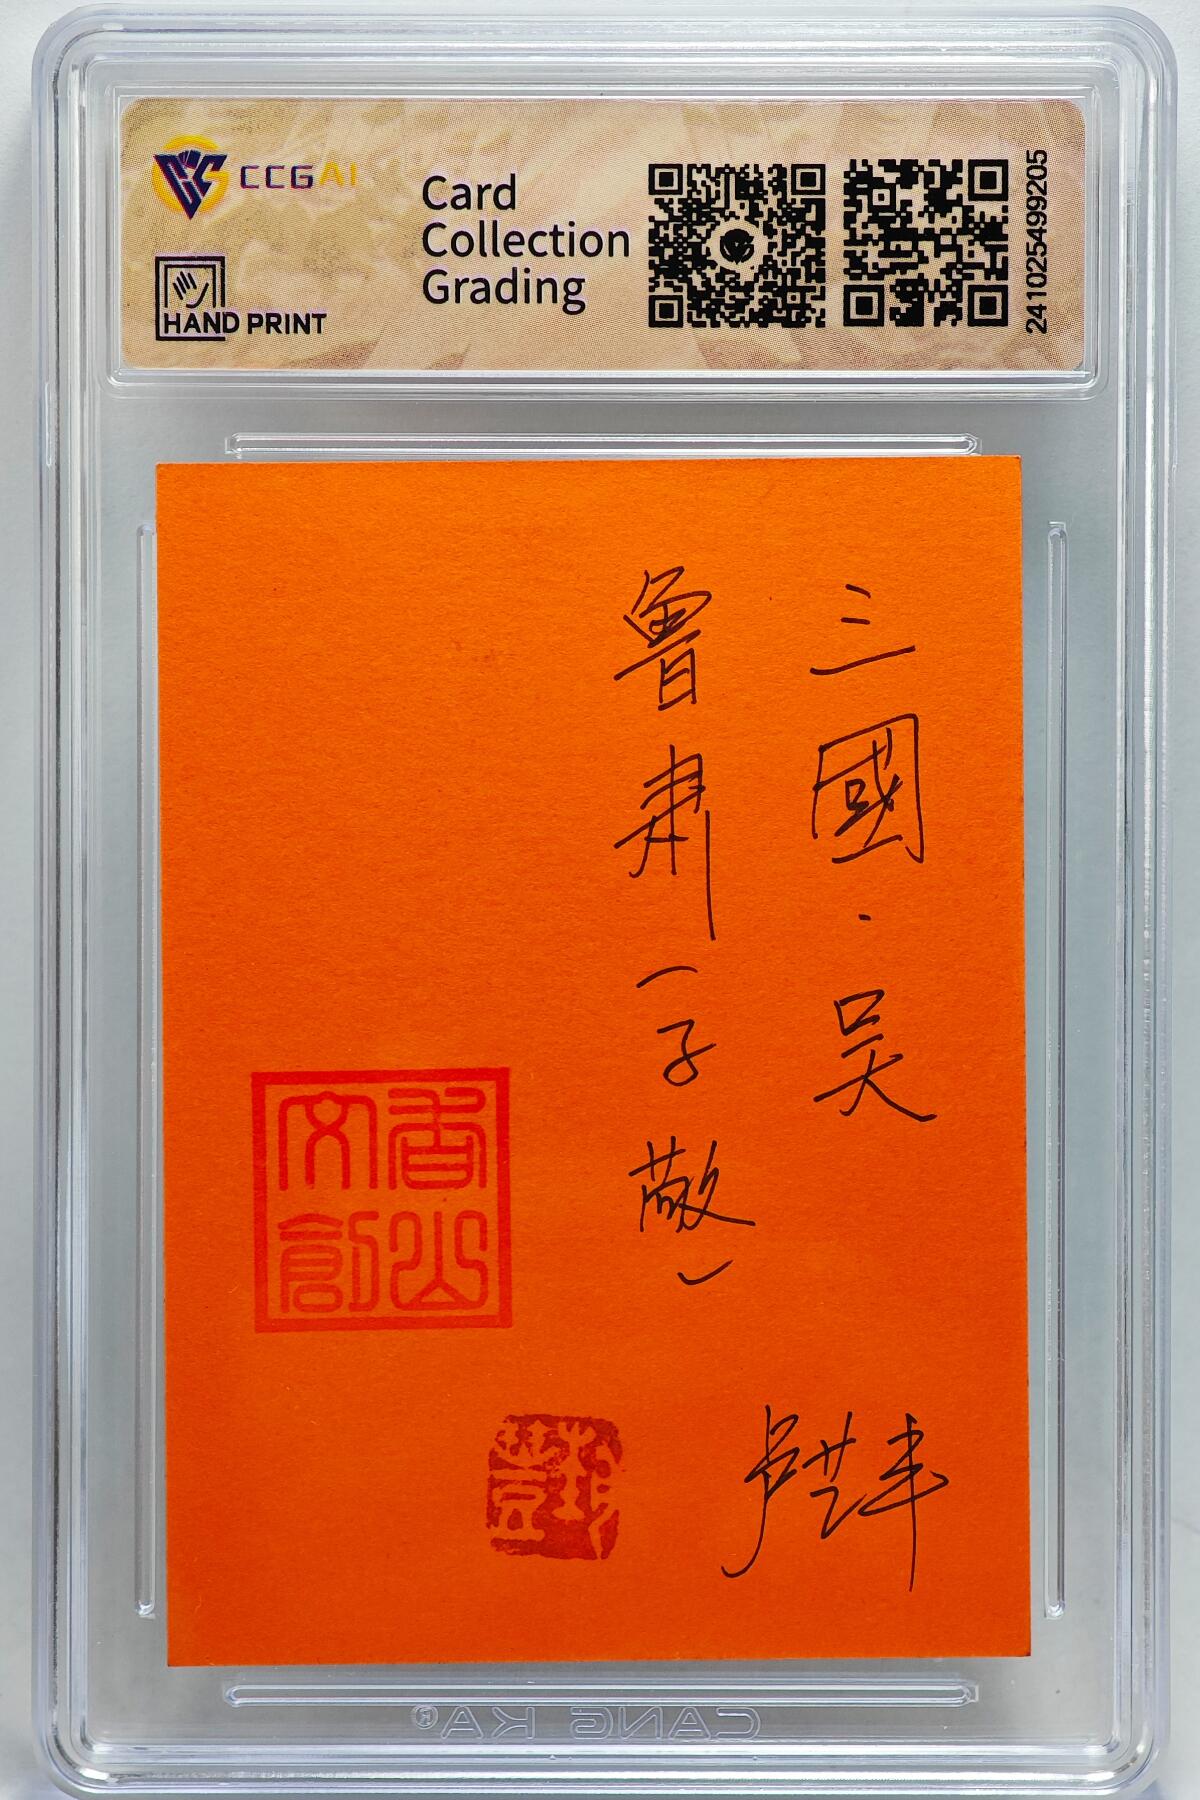 CCGAI
HAND PRINT
Card
Collection
Grading
241025499205
三國·吴
魯肅(子敬)
香山
文創
CANG KA®